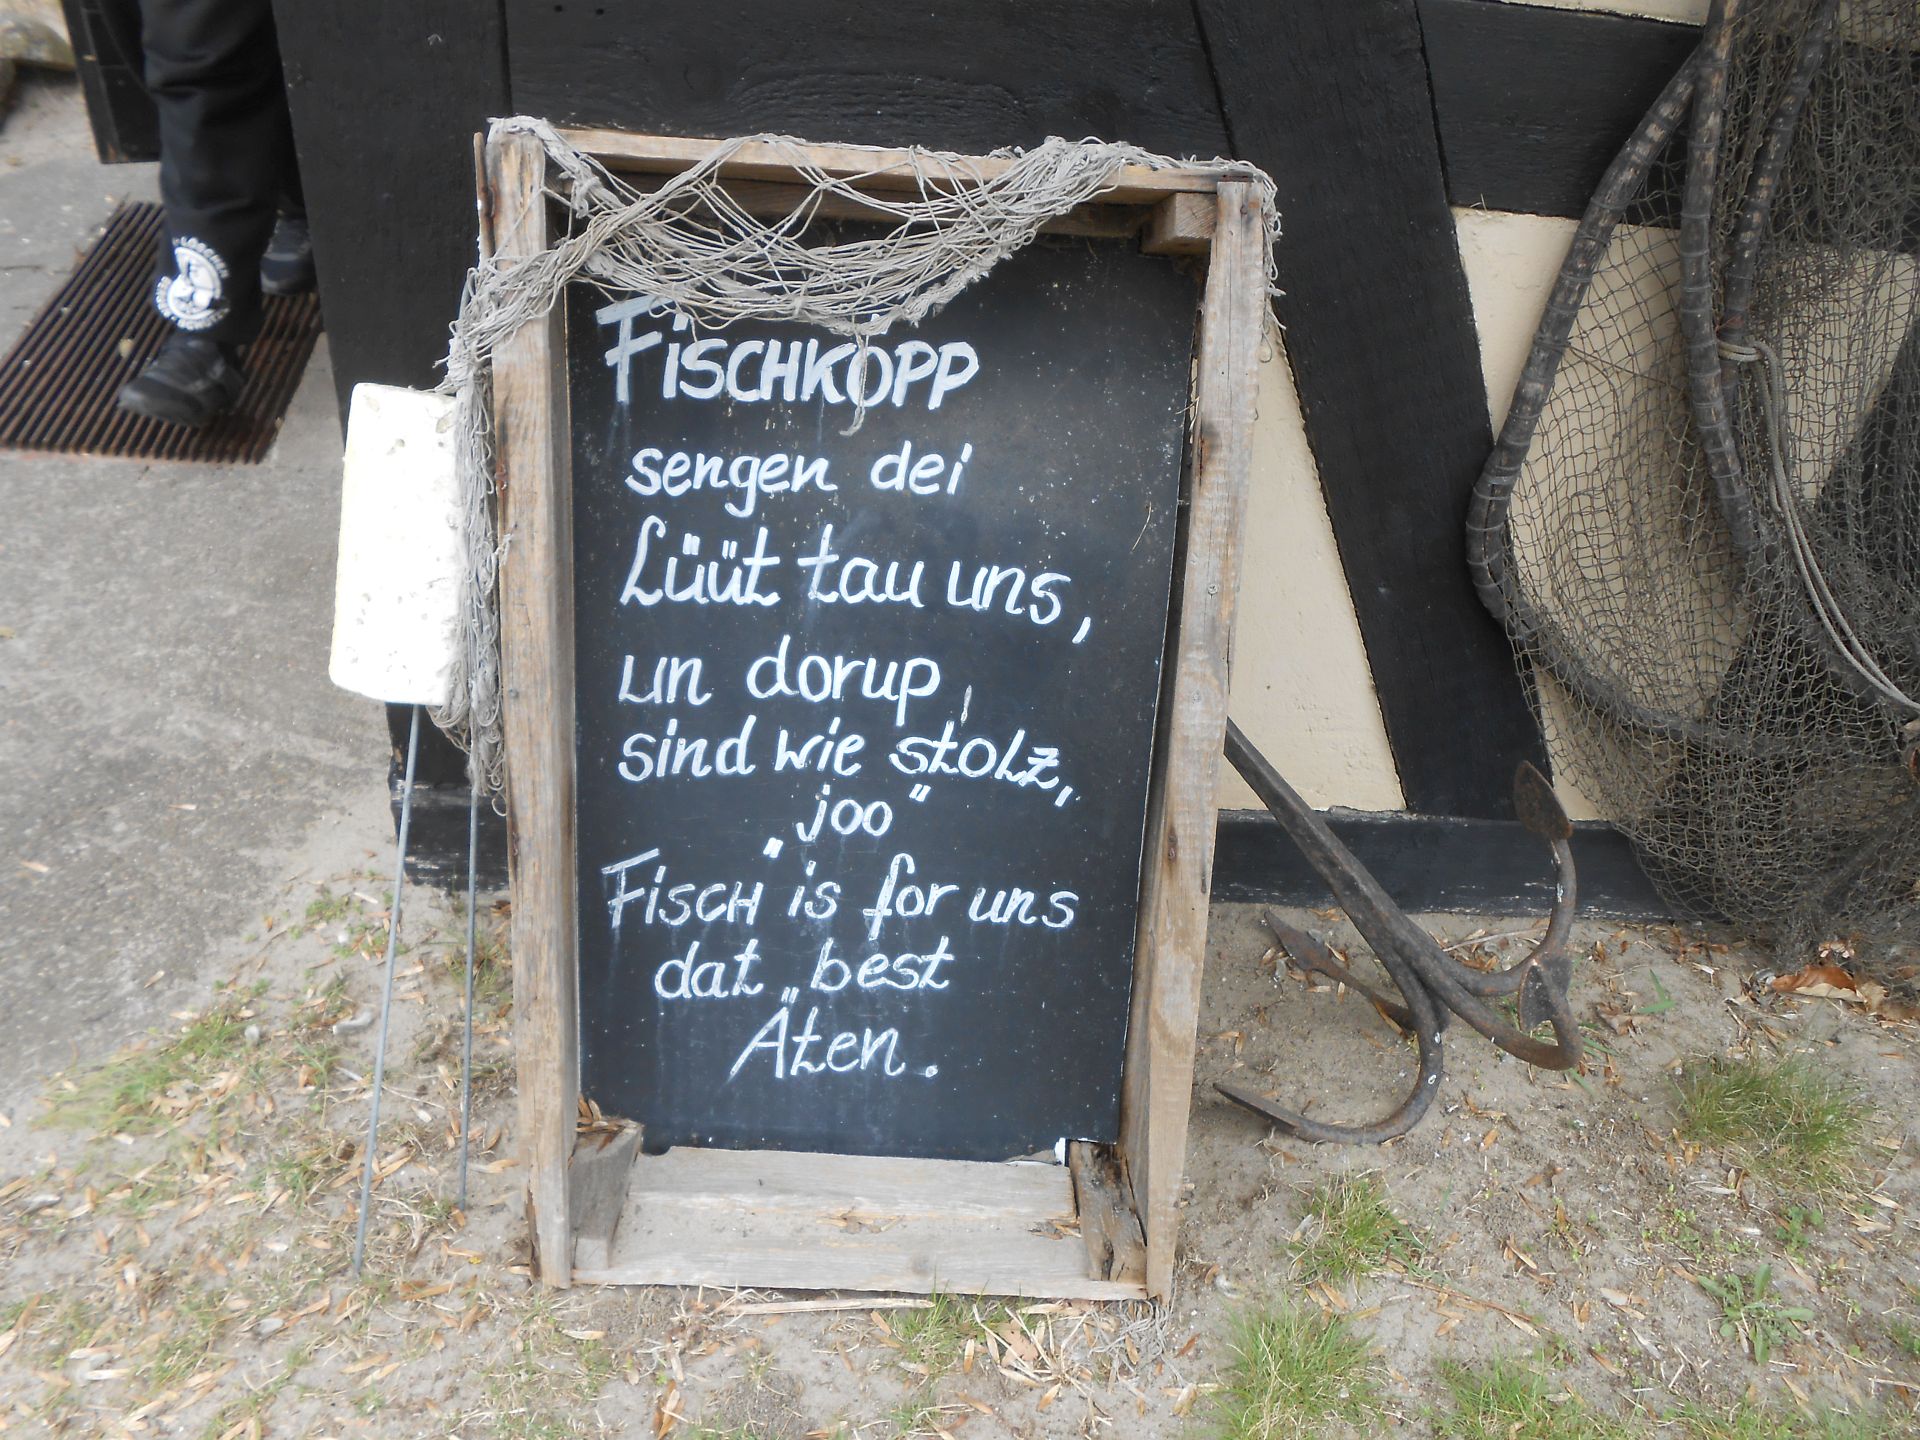 Fischkopp
sengen dei
Lüüt tau uns,
un dorup
sind wie stolz,
"joo"
Fisch is for uns
dat best
Äten.